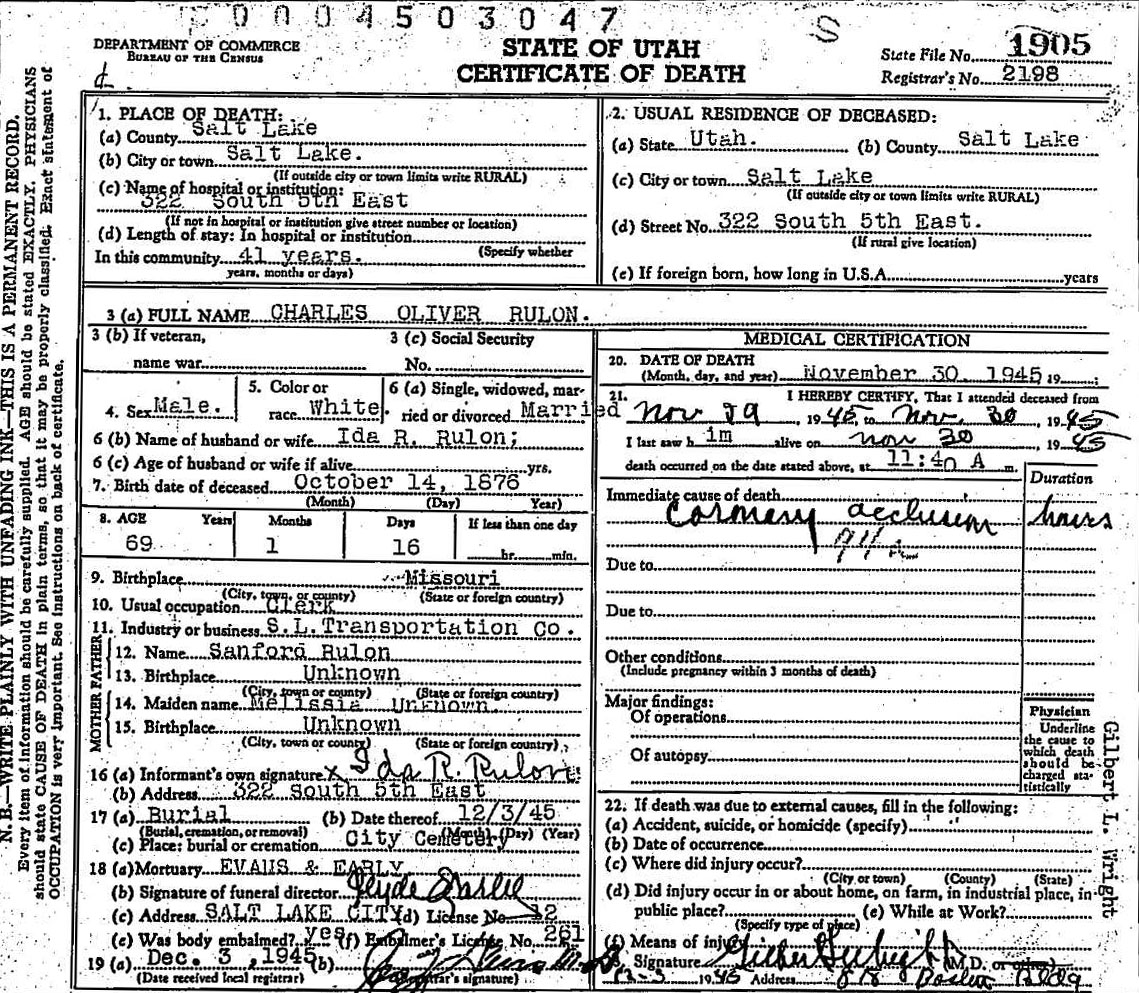 0004503047 S
DEPARTMENT OF COMMERCE
BUREAU OF THE CENSUS
STATE OF UTAH
CERTIFICATE OF DEATH
State File No. 1905
Registrar's No. 2198
N. B.—WRITE PLAINLY WITH UNFADING INK—THIS IS A PERMANENT RECORD.
Every item of information should be carefully supplied. AGE should be stated EXACTLY. PHYSICIANS
should state CAUSE OF DEATH in plain terms, so that it may be properly classified. Exact statement of
OCCUPATION is very important. See instructions on back of certificate.
1. PLACE OF DEATH:
(a) County Salt Lake
(b) City or town Salt Lake.
(If outside city or town limits write RURAL)
(c) Name of hospital or institution:
322 South 5th East
(If not in hospital or institution give street number or location)
(d) Length of stay: In hospital or institution
(Specify whether
In this community 41 years.
years, months or days)
2. USUAL RESIDENCE OF DECEASED:
(a) State Utah. (b) County Salt Lake
(c) City or town Salt Lake
(If outside city or town limits write RURAL)
(d) Street No. 322 South 5th East.
(If rural give location)
(e) If foreign born, how long in U.S.A. years
3 (a) FULL NAME CHARLES OLIVER RULON.
3 (b) If veteran, 3 (c) Social Security
name war No.
4. Sex Male. 5. Color or race White. 6 (a) Single, widowed, married or divorced Married
6 (b) Name of husband or wife Ida R. Rulon;
6 (c) Age of husband or wife if alive yrs.
7. Birth date of deceased October 14, 1876
(Month) (Day) Year)
8. AGE Years Months Days If less than one day
69 1 16 hr. min.
9. Birthplace Missouri
(City, town, or county) (State or foreign country)
10. Usual occupation Clerk
11. Industry or business S.L.Transportation Co.
FATHER
12. Name Sanford Rulon
13. Birthplace Unknown
(City, town or county) (State or foreign country)
MOTHER
14. Maiden name Melissia Unknown.
15. Birthplace Unknown
(City, town or county) (State or foreign country)
16 (a) Informant's own signature x Ida R. Rulon
(b) Address 322 South 5th East
17 (a) Burial (b) Date thereof 12/3/45
(Burial, cremation, or removal) (Month) (Day) (Year)
(c) Place: burial or cremation City Cemetery
18 (a) Mortuary EVANS & EARLY
(b) Signature of funeral director
(c) Address SALT LAKE CITY (d) License No. 32
(e) Was body embalmed? yes (f) Embalmer's License No. 261
19 (a) Dec. 3, 1945 (b)
(Date received local registrar) (Registrar's signature)
MEDICAL CERTIFICATION
20. DATE OF DEATH
(Month, day, and year) November 30, 1945 19
21. I HEREBY CERTIFY, That I attended deceased from
Nov 29, 1945, to Nov. 30, 1945
I last saw him alive on Nov 30 1945
death occurred on the date stated above, at 11:40 A m.
Duration
Immediate cause of death
Coronary occlusion hours
Due to
Due to
Other conditions
(Include pregnancy within 3 months of death)
Major findings:
Of operations
Of autopsy
Physician
Underline
the cause to
which death
should be
charged sta-
tistically
22. If death was due to external causes, fill in the following:
(a) Accident, suicide, or homicide (specify)
(b) Date of occurrence
(c) Where did injury occur?
(City or town) (County) (State)
(d) Did injury occur in or about home, on farm, in industrial place, in
public place? (e) While at Work?
(Specify type of place)
(f) Means of injury
Signature (M.D. or other)
12-3 1945 Address Boston Bldg
Gilbert L. Wright